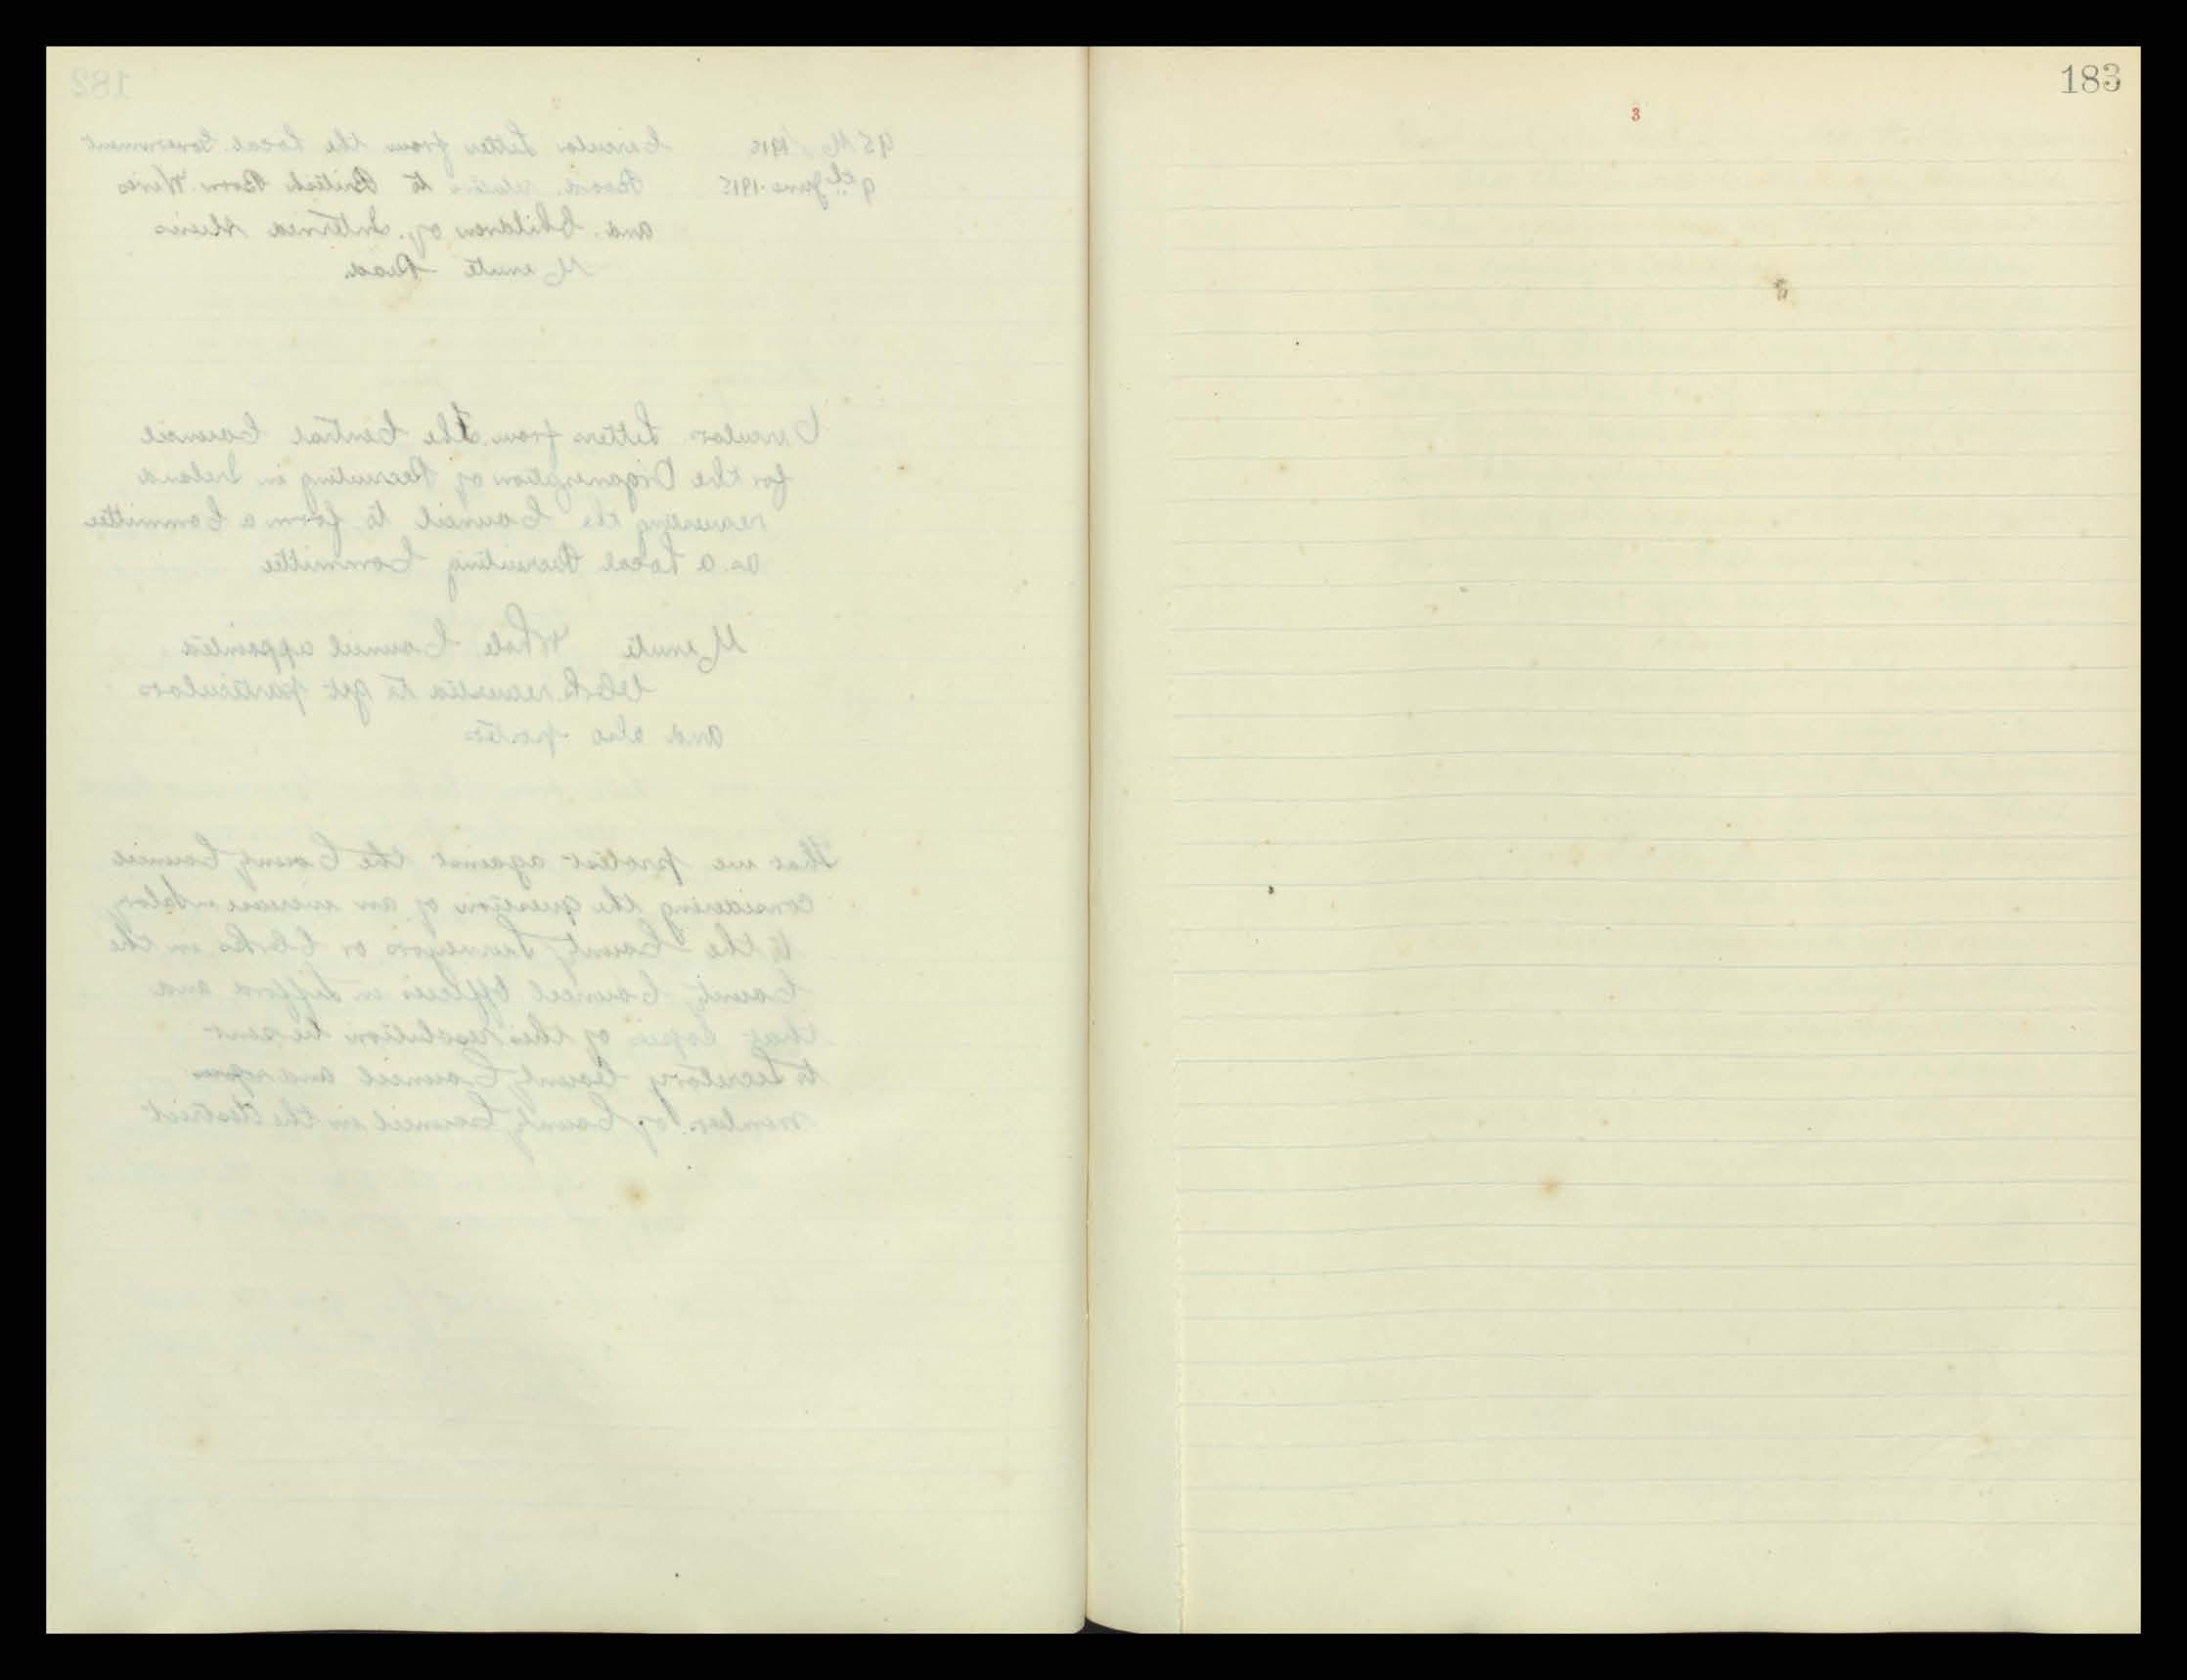 182
95 M/1915 Circular Letter from the Local Government
9th June 1915 Board relative to British Born Wives
and Children of Interned Aliens
Minute Read.
Circular Letter from the Central Council
for the Organisation of Recruiting in Ireland
requesting the Council to form a Committee
as a Local Recruiting Committee
Minute Whole Council appointed
Clerk requested to get particulars
and also posters
That we protest against the County Council
considering the question of an increase in Salary
to the County Surveyors or Clerks in the
County Council Offices in Lifford and
that Copies of this resolution be sent
to Secretary County Council and
member of County Council in the District
183
3